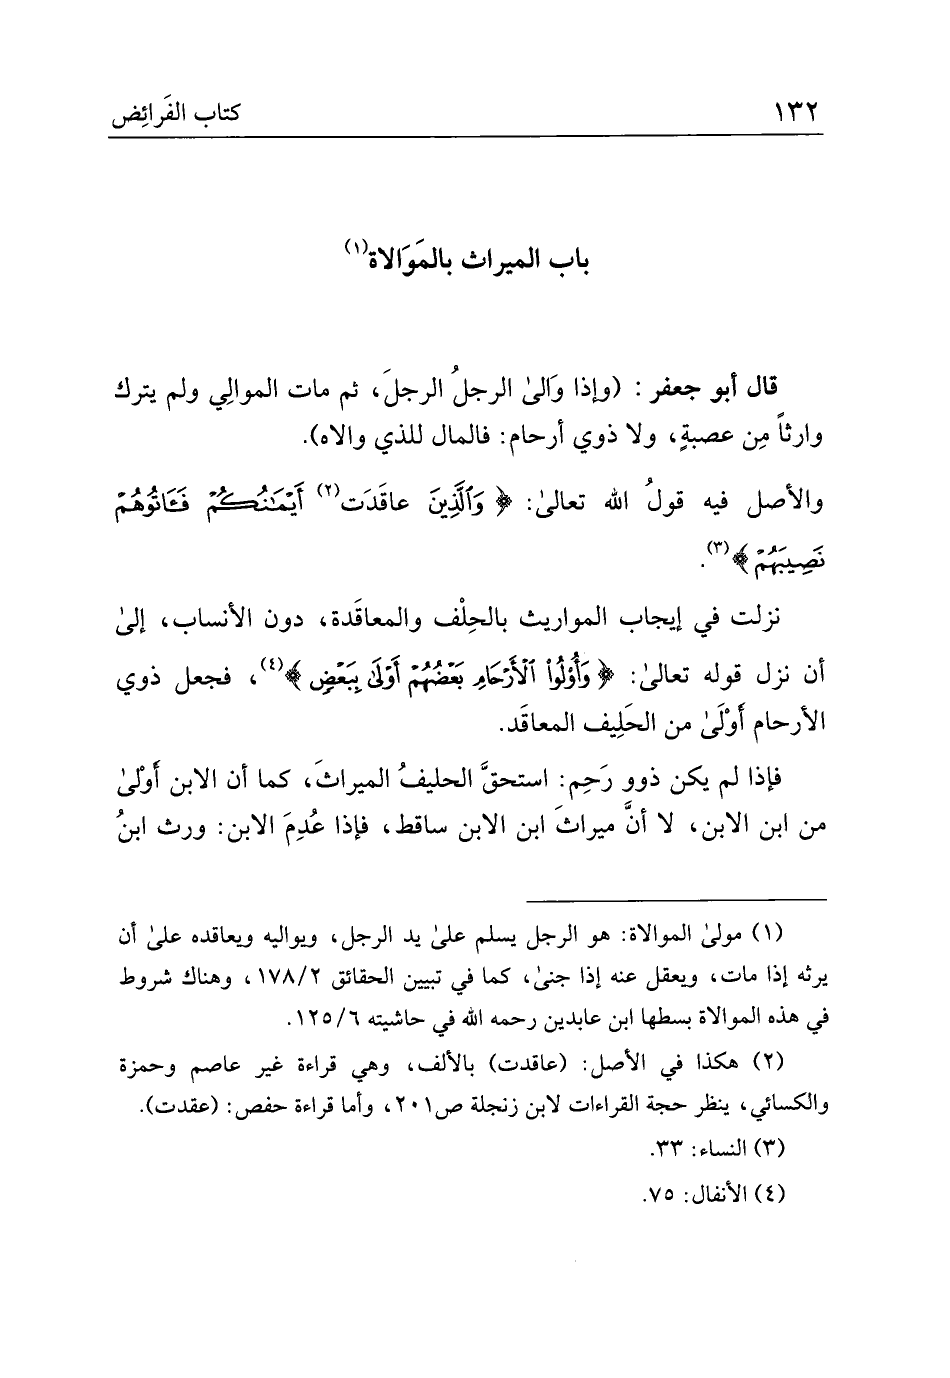 ١٣٢ كتاب الفَرائِض
باب الميراث بالمَوَالاة(١)
قال أبو جعفر : (وإذا وَالىٰ الرجلُ الرجلَ، ثم مات الموالِي ولم يترك
وارثاً مِن عصبةٍ، ولا ذوي أرحام: فالمال للذي والاه).
والأصل فيه قولُ الله تعالىٰ: ﴿ وَٱلَّذِينَ عاقَدَت(٢) أَيْمَٰنُكُمْ فَـَٔاتُوهُمْ
نَصِيبَهُمْ ﴾(٣).
نزلت في إيجاب المواريث بالحِلْف والمعاقَدة، دون الأنساب، إلىٰ
أن نزل قوله تعالىٰ: ﴿ وَأُوْلُواْ ٱلْأَرْحَامِ بَعْضُهُمْ أَوْلَىٰ بِبَعْضٍ ﴾(٤)، فجعل ذوي
الأرحام أَوْلَىٰ من الحَلِيف المعاقَد.
فإذا لم يكن ذوو رَحِم: استحقَّ الحليفُ الميراثَ، كما أن الابن أَوْلىٰ
من ابن الابن، لا أنَّ ميراثَ ابن الابن ساقط، فإذا عُدِمَ الابن: ورث ابنُ
(١) مولىٰ الموالاة: هو الرجل يسلم علىٰ يد الرجل، ويواليه ويعاقده علىٰ أن
يرثه إذا مات، ويعقل عنه إذا جنىٰ، كما في تبيين الحقائق ١٧٨/٢، وهناك شروط
في هذه الموالاة بسطها ابن عابدين رحمه الله في حاشيته ١٢٥/٦.
(٢) هكذا في الأصل: (عاقدت) بالألف، وهي قراءة غير عاصم وحمزة
والكسائي، ينظر حجة القراءات لابن زنجلة ص٢٠١، وأما قراءة حفص: (عقدت).
(٣) النساء: ٣٣.
(٤) الأنفال: ٧٥.